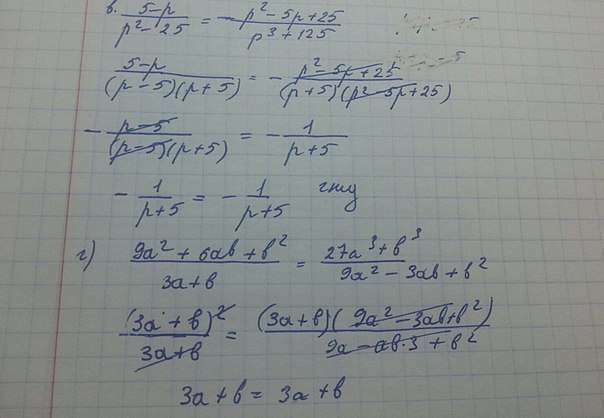 в. (5-p)/(p²-25) = -(p²-5p+25)/(p³+125)
(5-p)/((p-5)(p+5)) = -(p²-5p+25)/((p+5)(p²-5p+25))
-(p-5)/((p-5)(p+5)) = -1/(p+5)
-1/(p+5) = -1/(p+5) чту
г) (9a²+6ab+b²)/(3a+b) = (27a³+b³)/(9a²-3ab+b²)
(3a+b)²/(3a+b) = (3a+b)(9a²-3ab+b²)/(9a-ab·3+b²)
3a+b = 3a+b